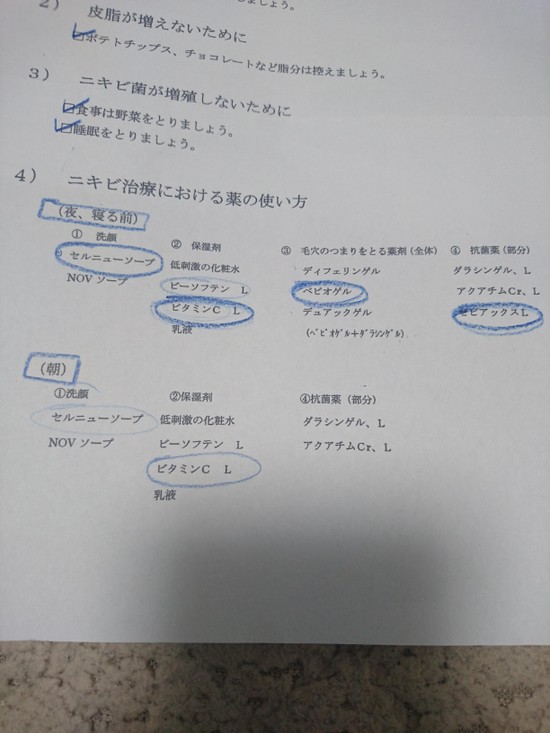 2)
しょう。
皮脂が増えないために
□ポテトチップス、チョコレートなど脂分は控えましょう。
3) ニキビ菌が増殖しないために
□食事は野菜をとりましょう。
□睡眠をとりましょう。
4) ニキビ治療における薬の使い方
(夜、寝る前)
① 洗顔 ② 保湿剤 ③ 毛穴のつまりをとる薬剤(全体) ④ 抗菌薬(部分)
セルニューソープ 低刺激の化粧水 ディフェリンゲル ダラシンゲル、L
NOV ソープ ビーソフテン L ベピオゲル アクアチムCr、L
ビタミンC L デュアックゲル ゼビアックスL
乳液 (ベピオゲル+ダラシンゲル)
(朝)
①洗顔 ②保湿剤 ④抗菌薬(部分)
セルニューソープ 低刺激の化粧水 ダラシンゲル、L
NOV ソープ ビーソフテン L アクアチムCr、L
ビタミンC L
乳液